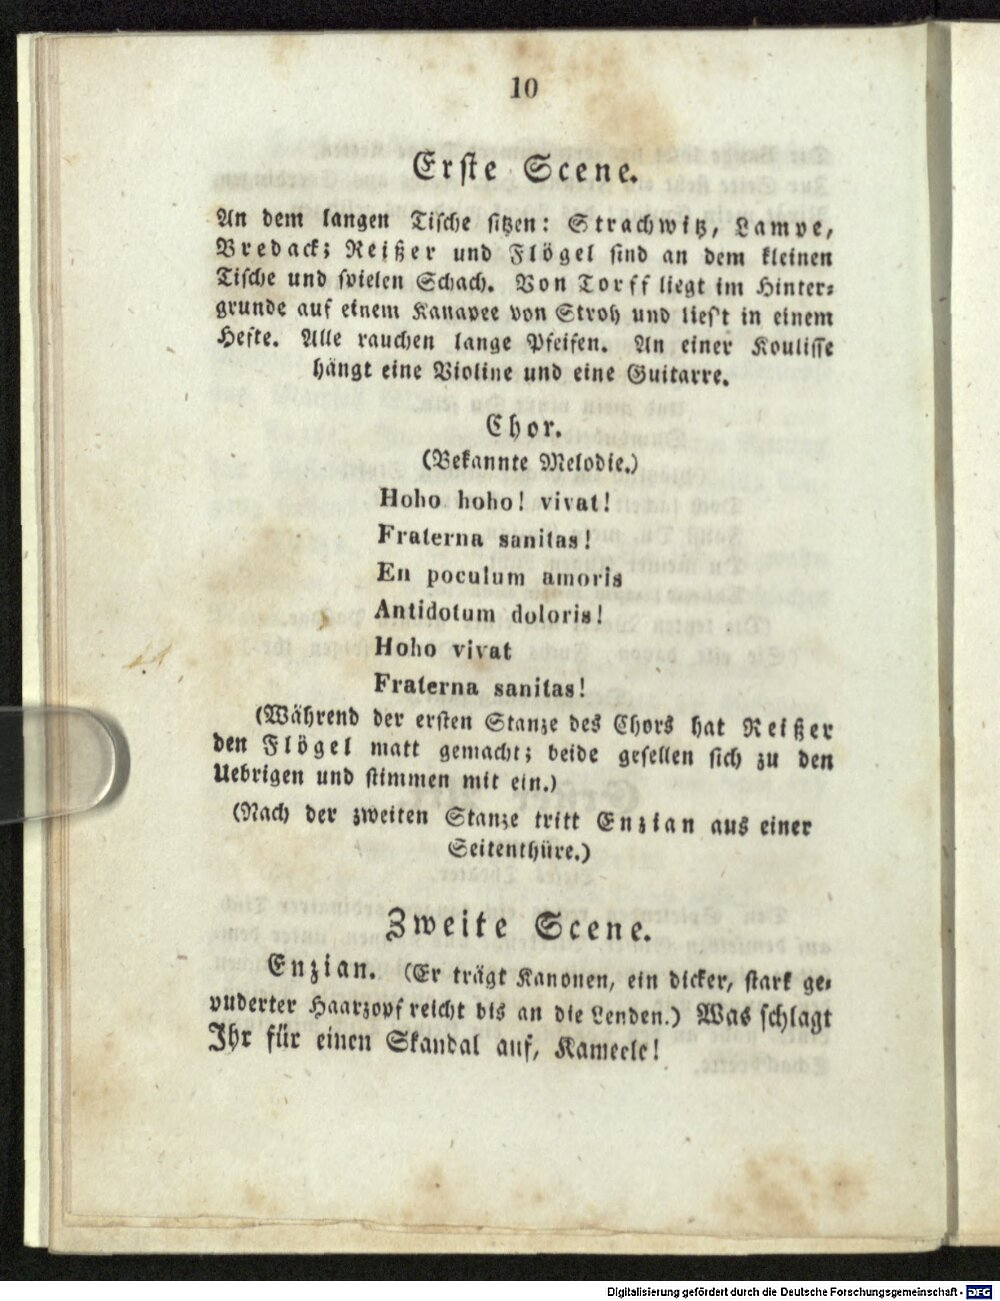 10
Erste Scene.
An dem langen Tische sitzen: Strachwitz, Lampe,
Bredack; Reißer und Flögel sind an dem kleinen
Tische und spielen Schach. Von Torff liegt im Hinter-
grunde auf einem Kanapee von Stroh und lies't in einem
Hefte. Alle rauchen lange Pfeifen. An einer Koulisse
hängt eine Violine und eine Guitarre.
Chor.
(Bekannte Melodie.)
Hoho hoho! vivat!
Fraterna sanitas!
En poculum amoris
Antidotum doloris!
Hoho vivat
Fraterna sanitas!
(Während der ersten Stanze des Chors hat Reißer
den Flögel matt gemacht; beide gesellen sich zu den
Uebrigen und stimmen mit ein.)
(Nach der zweiten Stanze tritt Enzian aus einer
Seitenthüre.)
Zweite Scene.
Enzian. (Er trägt Kanonen, ein dicker, stark ge-
puderter Haarzopf reicht bis an die Lenden.) Was schlagt
Ihr für einen Skandal auf, Kameele!
Digitalisierung gefördert durch die Deutsche Forschungsgemeinschaft - DFG